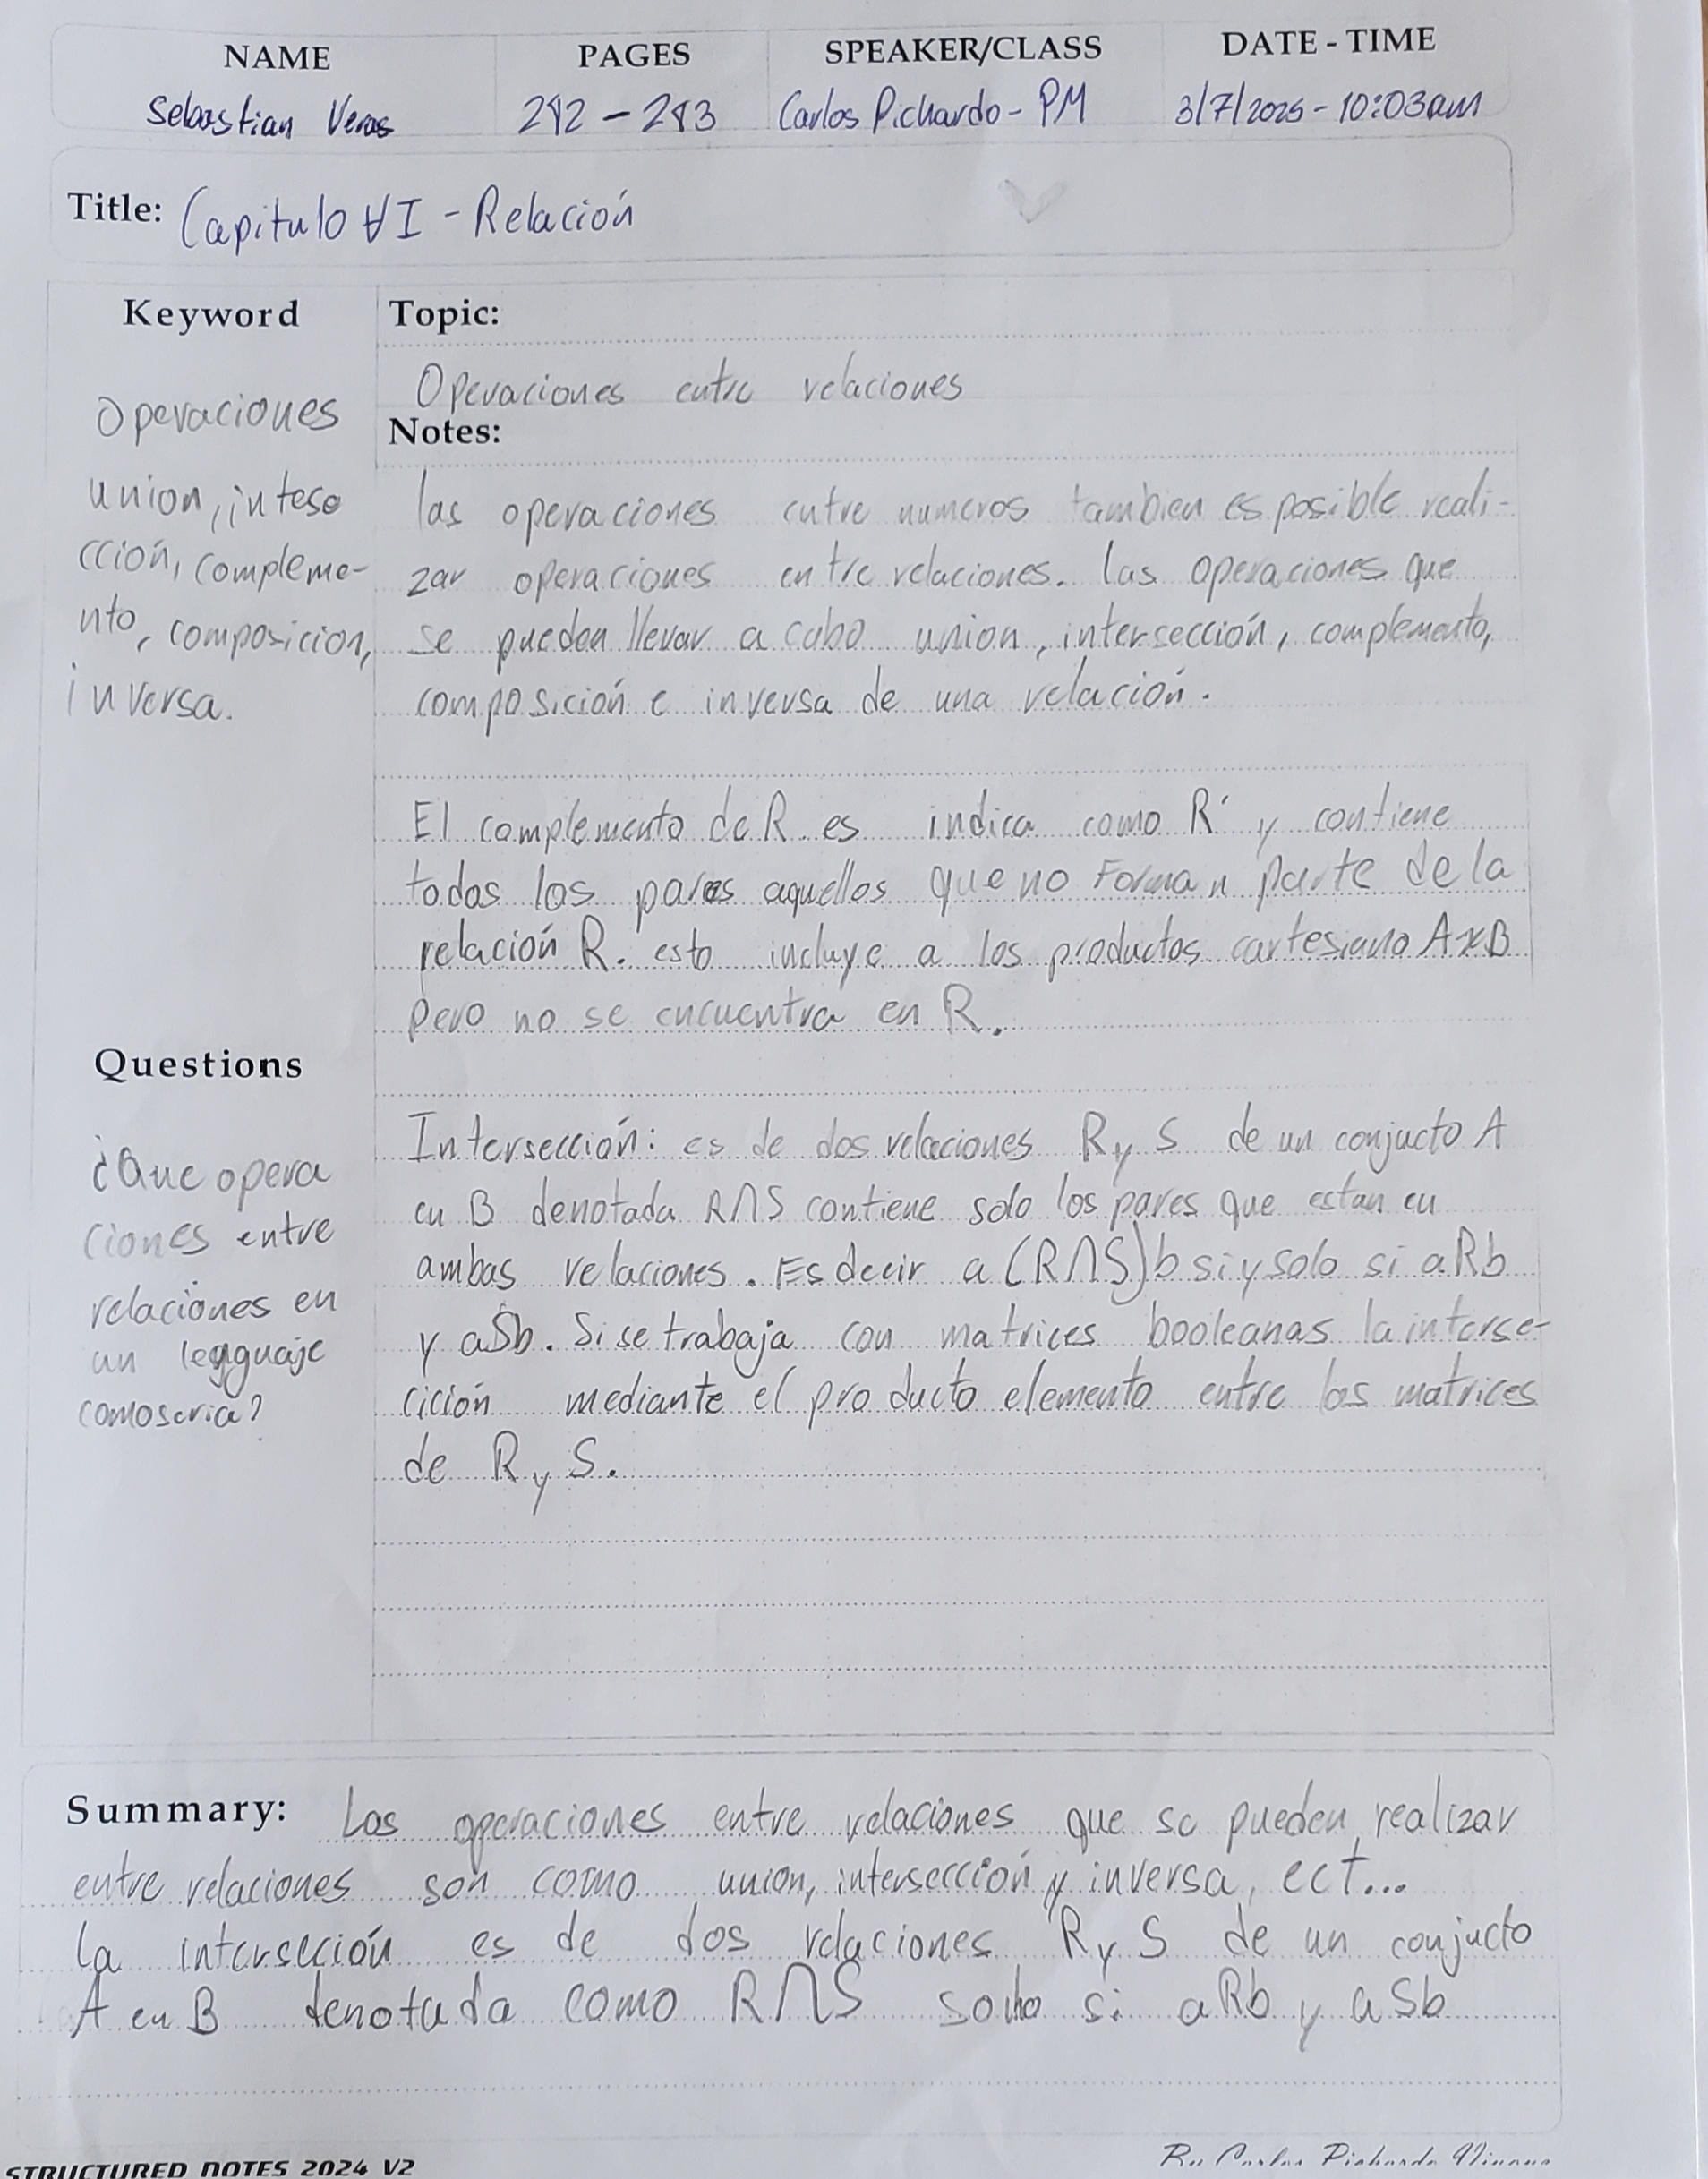 NAME PAGES SPEAKER/CLASS DATE - TIME
Sebastian Veras 242 - 243 Carlos Pichardo - PM 3/7/2025 - 10:03am
Title: Capitulo VI - Relación
Keyword
Operaciones
union, intese
cción, compleme-
nto, composicion,
inversa.
Topic:
Operaciones entre relaciones
Notes:
las operaciones entre numeros tambien es posible reali-
zar operaciones entre relaciones. las operaciones que
se pueden llevar a cabo union, intersección, complemento,
composición e inversa de una relación.
El complemento de R es indica como R' y contiene
todos los pares aquellos que no Forman parte de la
relación R. esto incluye a los productos cartesiano AxB
pero no se encuentra en R.
Questions
¿Que opera
ciones entre
relaciones en
un lenguaje
como seria?
Intersección: es de dos relaciones R y S de un conjucto A
en B denotada R∩S contiene solo los pares que estan en
ambas relaciones. Es decir a (R∩S) b si y solo si aRb
y aSb. Si se trabaja con matrices booleanas la interse-
cición mediante el producto elemento entre las matrices
de R y S.
Summary: Las operaciones entre relaciones que se pueden realizar
entre relaciones son como union, intersección y inversa, ect...
la interseción es de dos relaciones R y S de un conjucto
A en B denotada como R∩S solo si aRb y aSb
STRUCTURED NOTES 2024 V2
By Carlos Pichardo